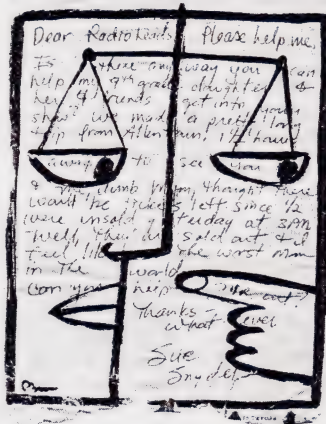 Dear Radioheads, Please help me,
Is there any way you can
help my 9th grade daughter &
her 4 friends get into your
show we made a pretty long
trip from Allentown, 1½ hours
away to see you
& me dumb Mom, thought there
would be tickets left since ½
were unsold yesterday at 5
Well, they're sold out & I
feel like the worst mom
in the world
Can you help out?
Thanks
what ever
Sue
Snyder